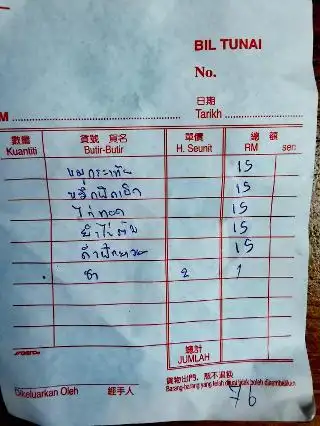 BIL TUNAI
No.
日期
M Tarikh
數量 貨號 貨名 單價 總額
Kuantiti Butir-Butir H. Seunit RM sen
หมูกระเทียม 15
15
ไก่ทอด 15
ยำไข่ต้ม 15
15
ชา 2 1
總計
JUMLAH
貨物出門，恕不退換
Barang-barang yang telah dijual tidak boleh dikembalikan
Dikeluarkan Oleh 經手人
76